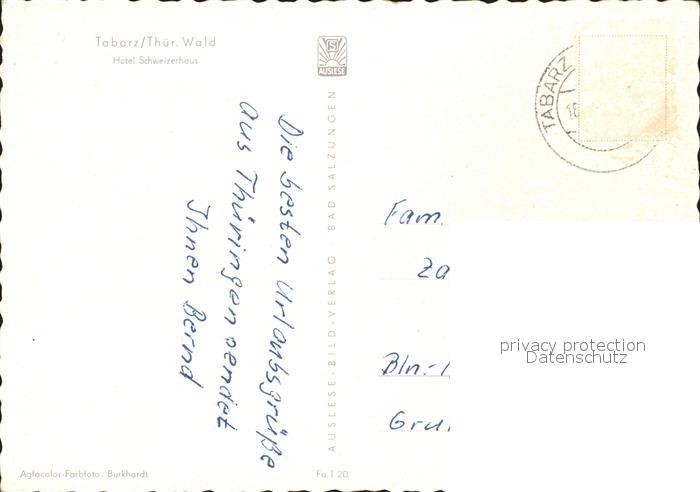 Tabarz/Thür. Wald
Hotel Schweizerhaus
AUSLESE
TABARZ
18
Die besten Urlaubsgrüße
aus Thüringen sendet
Ihnen Bernd
AUSLESE-BILD-VERLAG · BAD SALZUNGEN
Fam.
Za
Bln.-
Gru.
privacy protection
Datenschutz
Agfacolor-Farbfoto: Burkhardt
Fa T 20